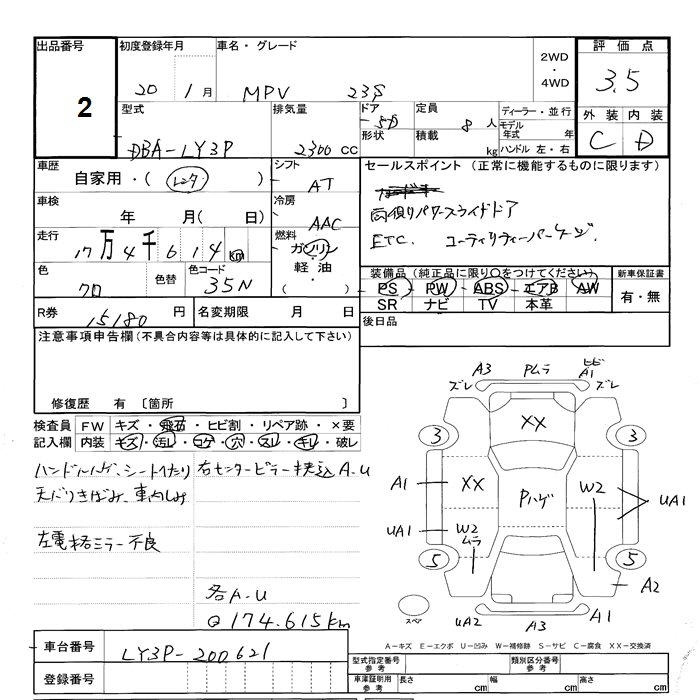 出品番号 初度登録年月 車名・グレード 2WD・4WD 評価点
2
20 1月 MPV 23S 3.5
型式 排気量 ドア 5D 定員 8人 ディーラー・並行
外装 内装
形状 積載 kg モデル年式 年
DBA-LY3P 2300cc ハンドル 左・右 C D
車歴 シフト セールスポイント (正常に機能するものに限ります)
自家用・( レンタ ) AT
車検 冷房 両側パワースライドドア
年 月( 日) AAC
走行 燃料 ETC. ユーティリティーパーケージ.
17万4千614km ガソリン・軽油・( )
色 色替 色コード 装備品 (純正品に限り〇をつけてください) 新車保証書
クロ 35N PS PW ABS エアB AW 有・無
SR ナビ TV 本革
R券 15180円 名変期限 月 日 後日品
注意事項申告欄(不具合内容等は具体的に記入して下さい)
修復歴 有 〔箇所 〕
検査員記入欄 FW キズ・飛石・ヒビ割・リペア跡・×要
内装 キズ・汚レ・コゲ・穴・スレ・キレ・破レ
ハンドルハゲ、シートへたり 右センターピラー押込 A.U
天バリきばみ、車内しみ
左電格ミラー不良
各A.U
Q 174.615km
A3 Pムラ ヒビ A1
ズレ ズレ
XX
3 3
A1 XX Pハゲ W2 UA1
UA1 W2 ムラ
5 5
A2
スペア UA2 A3 A1
A－キズ E－エクボ U－凹み W－補修跡 S－サビ C－腐食 XX－交換済
車台番号 LY3P-200621
型式指定番号 参考 類別区分番号 参考
登録番号
車庫証明用 参考 長さ cm 幅 cm 高さ cm